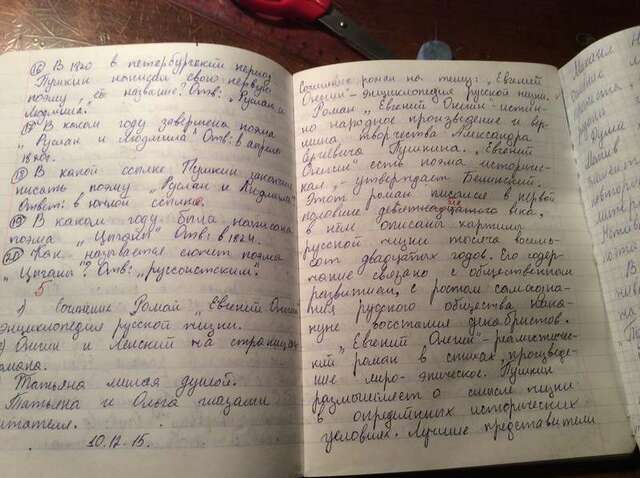 16) В 1820 в петербургский период
Пушкин написал свою первую
поэму, её название? Отв: „Руслан и
Людмила".
17) В каком году завершена поэма
„Руслан и Людмила? Отв: 6 апреля
18
18) В какой ссылке Пушкин закончил
писать поэму „Руслан и Людмила"
Ответ: в южной ссылке.
19) В каком году была написана
поэма „Цыганы" Отв: в 1824.
20) Как называется сюжет поэма
„Цыганы"? Отв: „руссоистским".
5
1) Сочинение Роман „Евгений Онегин
энциклопедия русской жизни.
Онегин и Ленский на страницах
романа.
Татьяна милая душой.
Татьяна и Ольга глазами
читателя.
10.12.15.
Сочинение роман на тему: „Евгений
Онегин"-энциклопедия русской жизни.
Роман „Евгений Онегин" истин-
но народное произведение и вер-
шина творчества Александра
Сергеевича Пушкина. „Евгений
Онегин" есть поэма историчес-
кая,- утверждает Белинский.
Этот роман писался в первой
половине девятнадцатого века,
в нём описаны картины
русской жизни тысяча восемь-
сот двадцатых годов. Его содер-
жание связано с общественном
развитием, с ростом самосозна-
ния русского общества нака-
нуне восстания декабристов.
„Евгений Онегин"- реалистичес-
кий роман в стихах, произведе-
ние лиро-эпическое. Пушкин
размышляет о смысле жизни
в определённых исторических
условиях. Лучшие представители